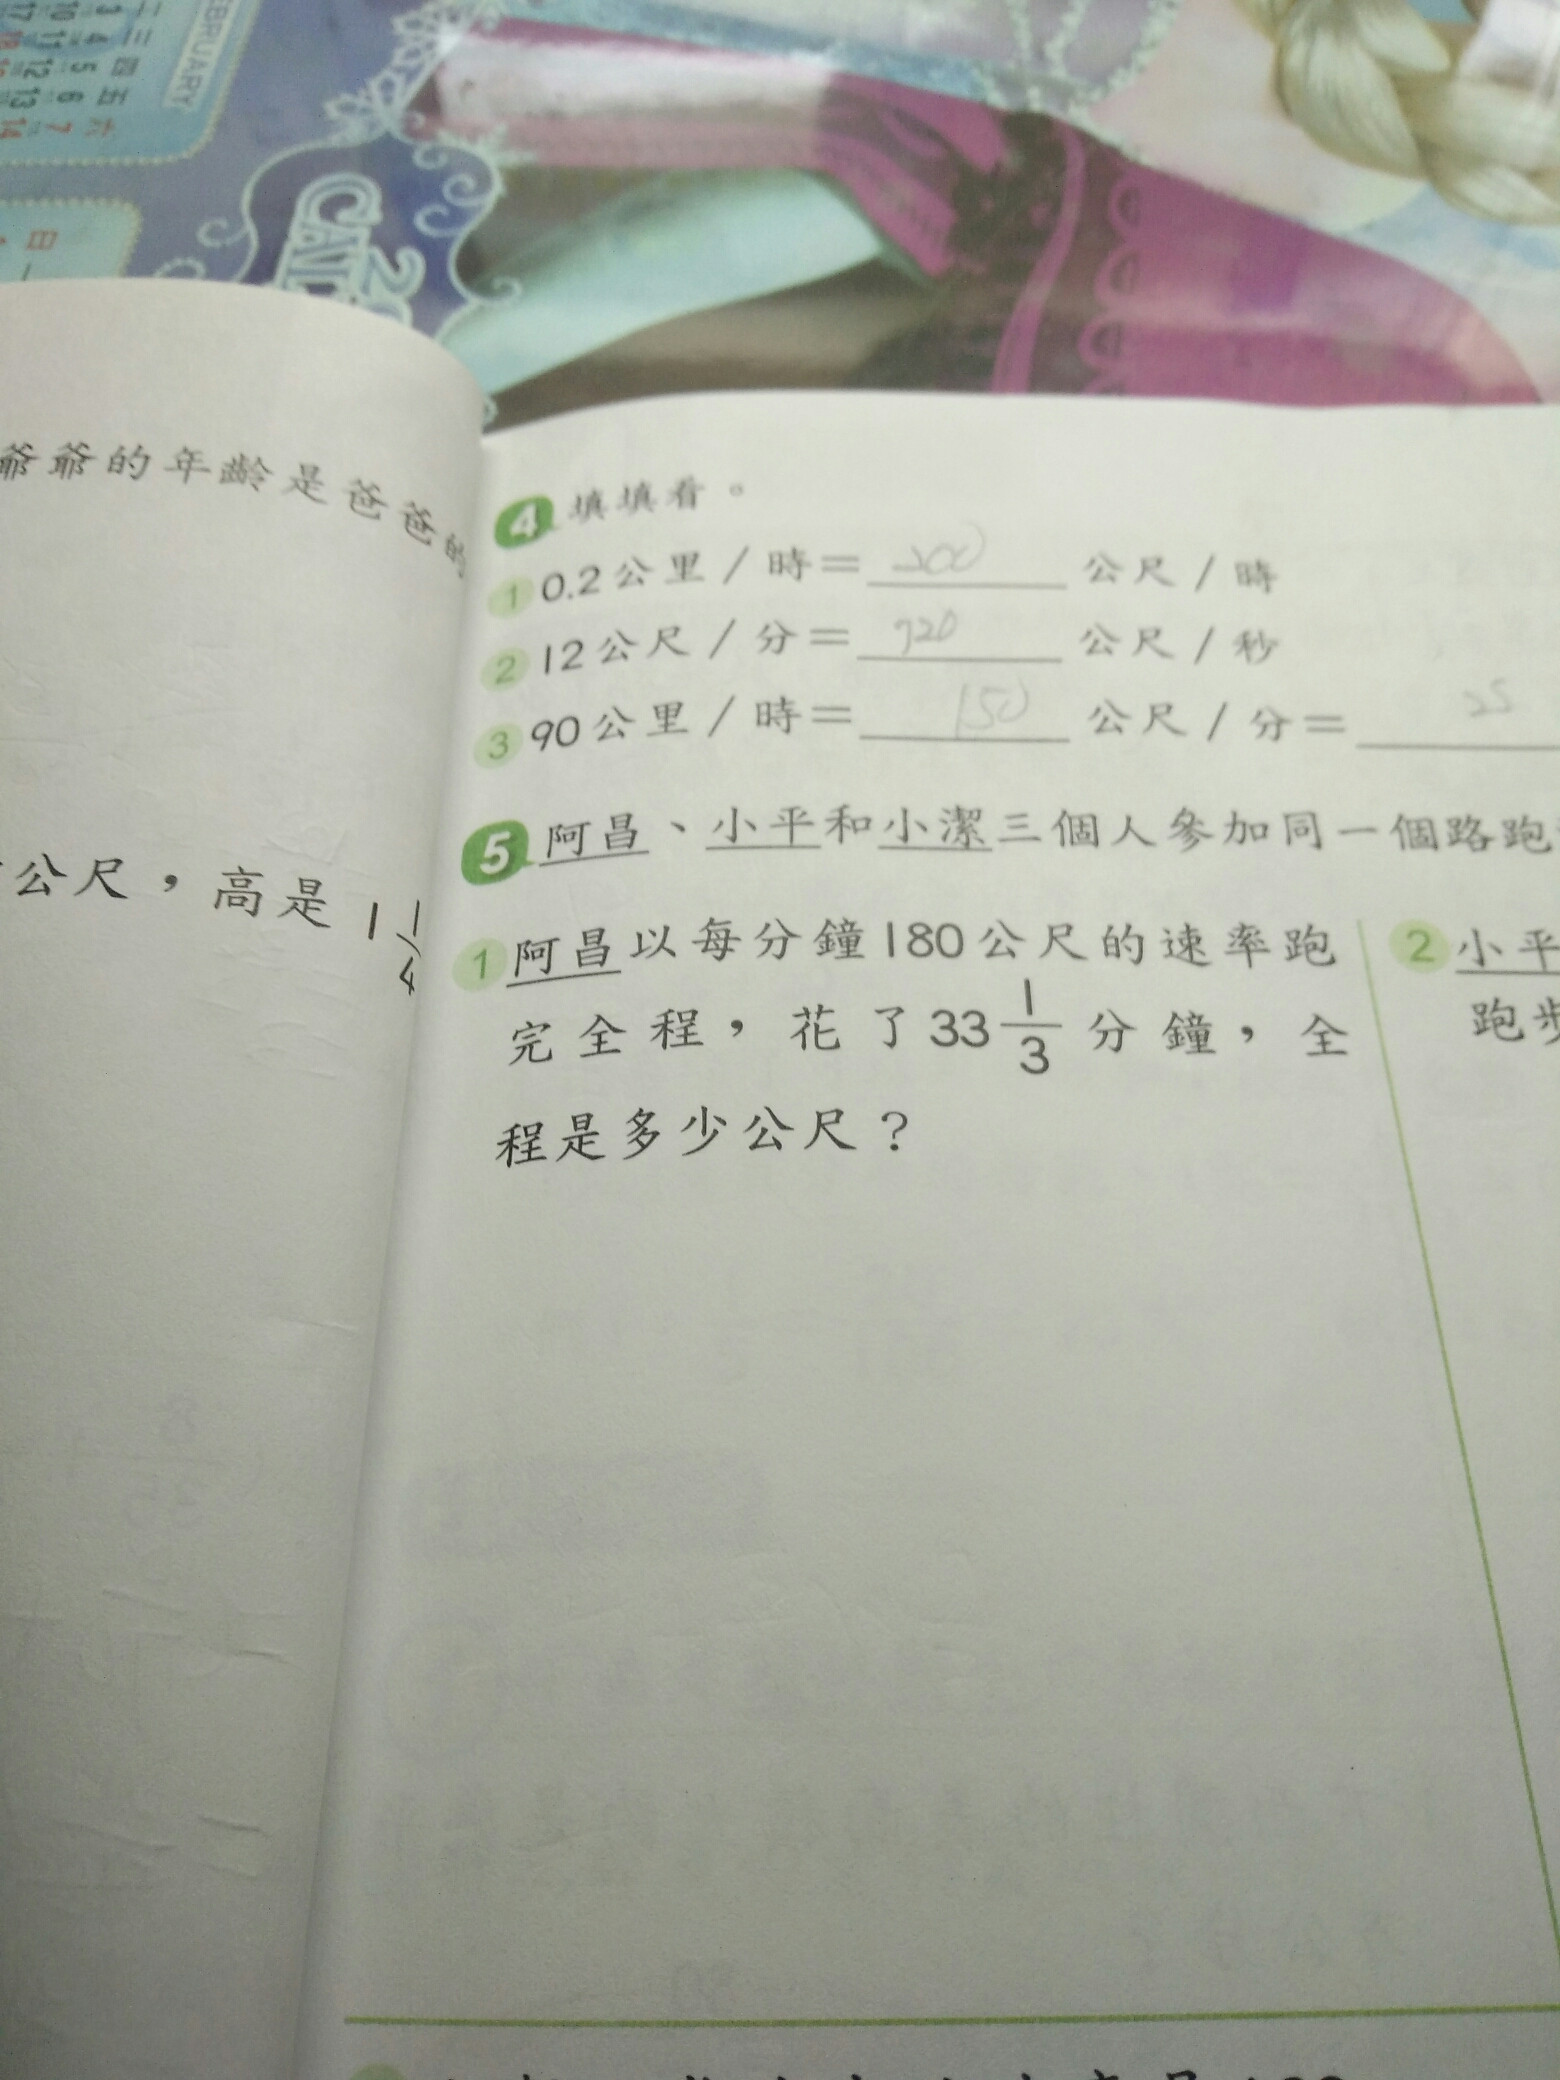 EBRUARY
二 三 四 五 六
3 4 5 6 7
10 11 12 13 14
17
日 一
爺爺的年齡是爸爸的
公尺,高是1 1/4
4 填填看。
1 0.2公里/時=200公尺/時
2 12公尺/分=720公尺/秒
3 90公里/時=150公尺/分=25
5 阿昌、小平和小潔三個人參加同一個路跑
1 阿昌以每分鐘180公尺的速率跑
完全程,花了33 1/3分鐘,全
程是多少公尺?
2 小平
跑步